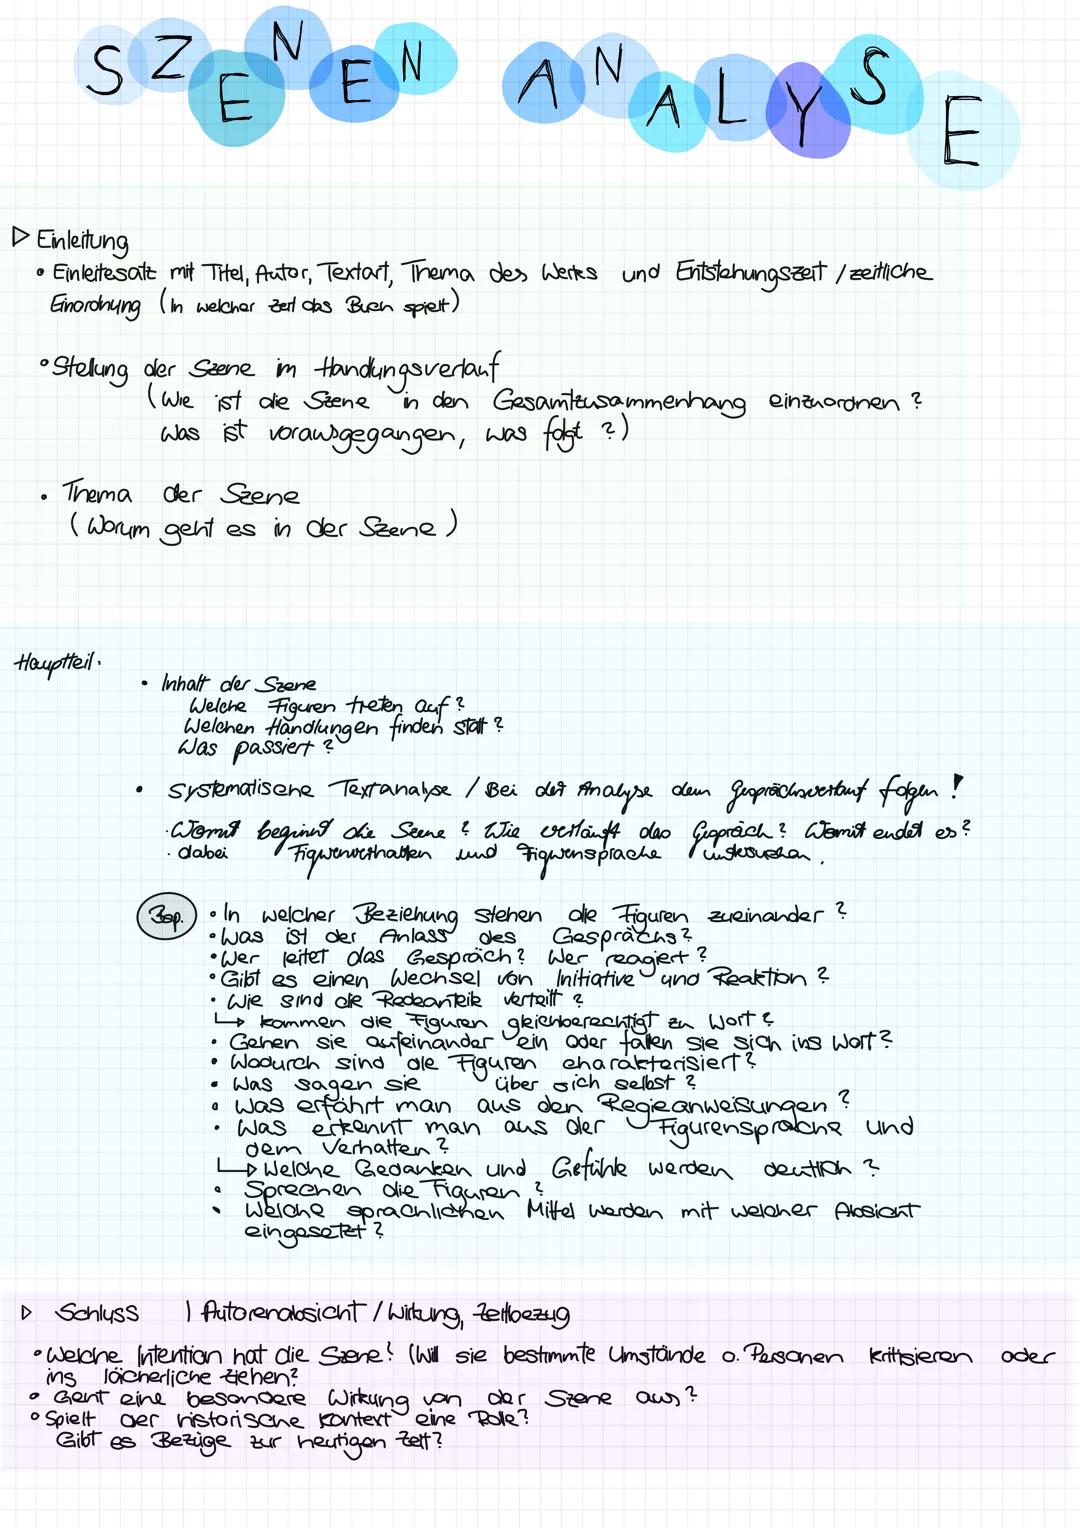 SZENEN ANALYSE
▷ Einleitung
• Einleitesatz mit Titel, Autor, Textart, Thema des Werks und Entstehungszeit / zeitliche
Einordnung (In welcher Zeit das Buch spielt)
• Stellung der Szene im Handlungsverlauf
(Wie ist die Szene in den Gesamtzusammenhang einzuordnen ?
Was ist vorausgegangen, was folgt ?)
• Thema der Szene
(Worum geht es in der Szene)
Hauptteil:
• Inhalt der Szene
Welche Figuren treten auf ?
Welchen Handlungen finden statt ?
Was passiert ?
• Systematische Textanalyse / Bei der Analyse dem Gesprächsverlauf folgen !
· Womit beginnt die Szene ? Wie verläuft das Gespräch ? Womit endet es ?
· dabei Figurenverhalten und Figurensprache untersuchen.
Bsp. • In welcher Beziehung stehen die Figuren zueinander ?
• Was ist der Anlass des Gesprächs ?
• Wer leitet das Gespräch ? Wer reagiert ?
• Gibt es einen Wechsel von Initiative und Reaktion ?
• Wie sind die Redeanteile verteilt ?
↳ kommen die Figuren gleichberechtigt zu Wort ?
• Gehen sie aufeinander ein oder fallen sie sich ins Wort ?
• Wodurch sind die Figuren charakterisiert ?
• Was sagen sie über sich selbst ?
• Was erfährt man aus den Regieanweisungen ?
• Was erkennt man aus der Figurensprache und
dem Verhalten ?
↳ Welche Gedanken und Gefühle werden deutlich ?
• Sprechen die Figuren ?
• Welche sprachlichen Mittel werden mit welcher Absicht
eingesetzt ?
▷ Schluss | Autorenabsicht / Wirkung, Zeitbezug
• Welche Intention hat die Szene? (Will sie bestimmte Umstände o. Personen kritisieren oder
ins lächerliche ziehen?
• Geht eine besondere Wirkung von der Szene aus ?
• Spielt der historische Kontext eine Rolle ?
Gibt es Bezüge zur heutigen Zeit ?